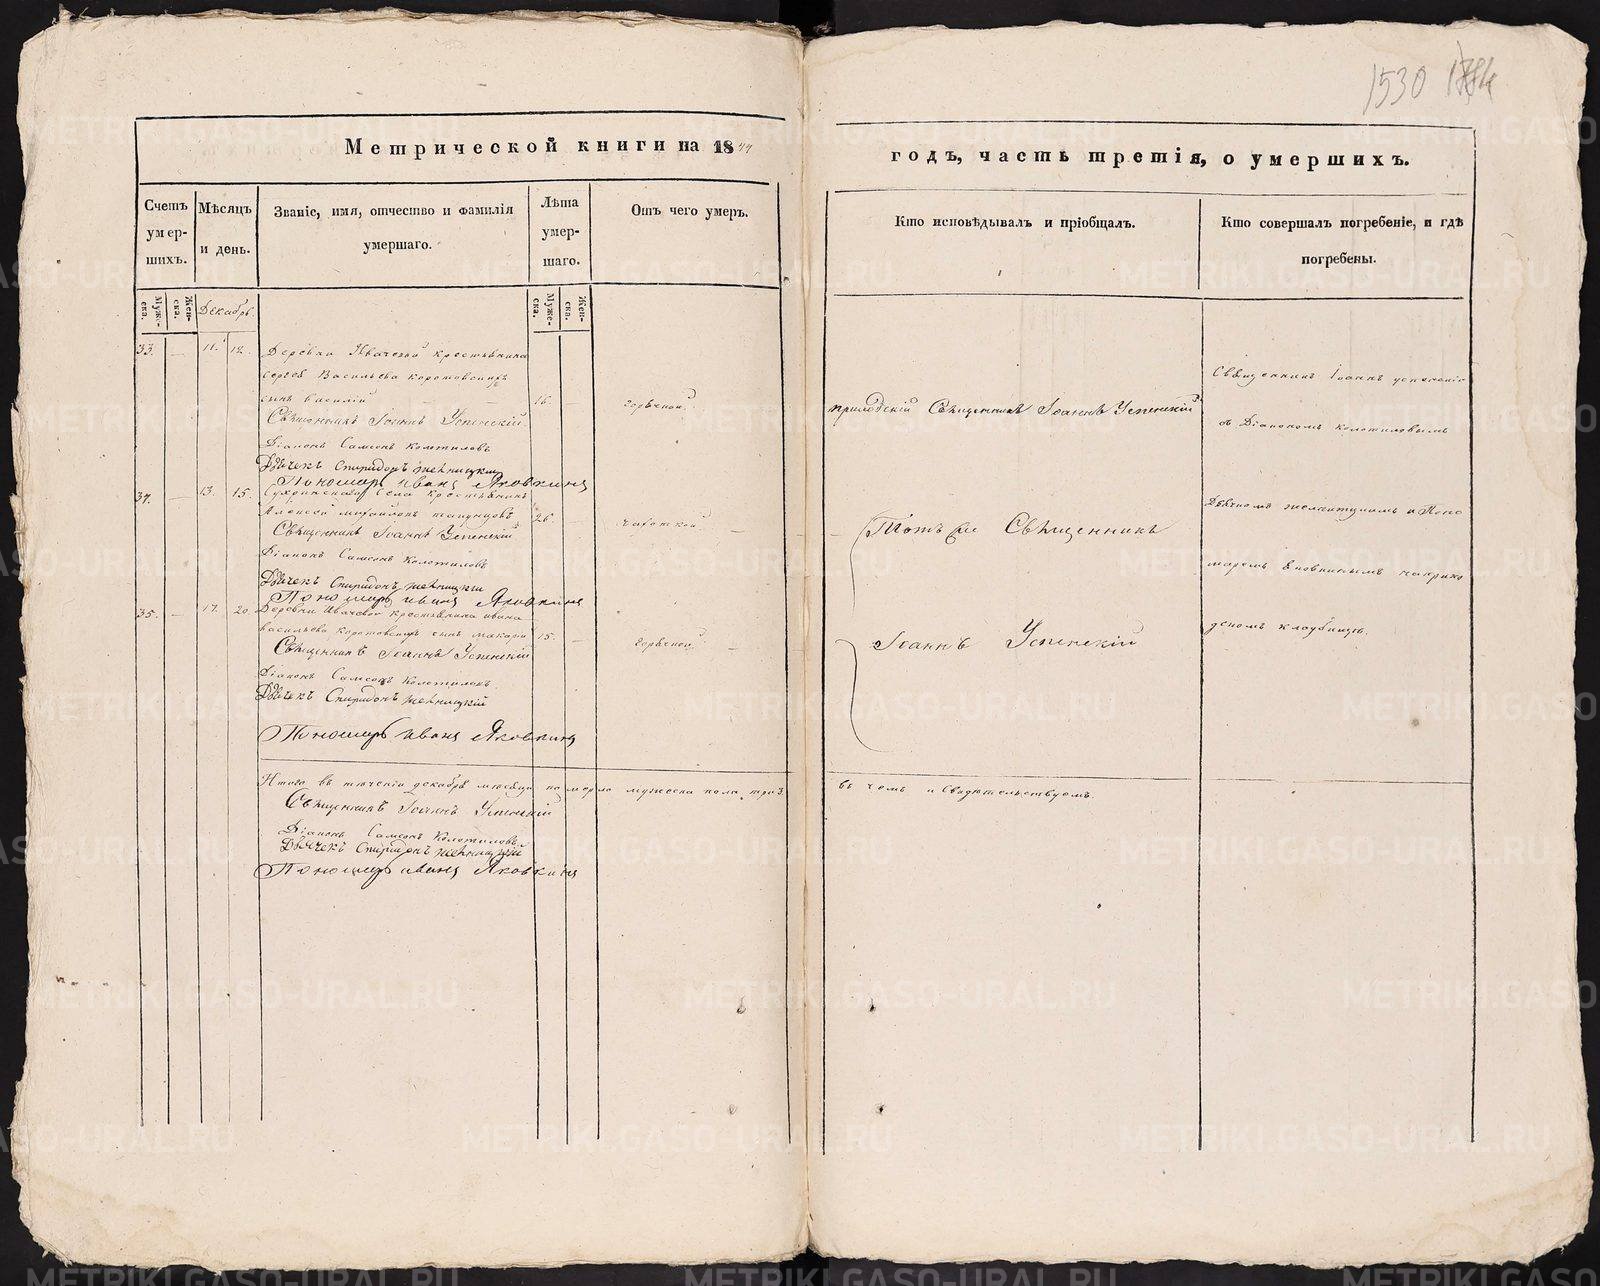 1530
Метрической книги на 1844
годъ, часть третія, о умершихъ.
Счетъ умер-шихъ.
Мѣсяцъ и день.
Званіе, имя, отчество и фамилія умершаго.
Лѣта умер-шаго.
Отъ чего умеръ.
Кто исповѣдывалъ и пріобщалъ.
Кто совершалъ погребеніе, и гдѣ погребены.
Муже-ска.
Жен-ска.
Декабрь
Муже-ска.
Жен-ска.
33. — 11. 12. Деревни крестьянина
Сергея Васильева коротовскихъ
сынъ василій 16. — горячкой
Священникъ Іоаннъ Успенскій
Діаконъ Самсонъ Колотиловъ
Дьячекъ Спиридонъ
Пономарь Иванъ Яковкинъ
приходскій Священникъ Іоаннъ Успенскій
Священникъ Іоаннъ успенскій
съ Діакономъ колотиловымъ
34. — 13. 15. Села крестьянинъ
Алексей михайловъ 26. — чахоткой —
Священникъ Іоаннъ Успенскій
Діаконъ Самсонъ Колотиловъ
Дьячекъ Спиридонъ
Пономарь иванъ Яковкинъ
Тотъ же Священникъ
Дьячкомъ и Поно
маремъ Яковкинымъ на прихо
35. — 17. 20. Деревни крестьянина ивана
васильева коротовскихъ сынъ макари 15. — Горячкой —
Священникъ Іоаннъ Успенскій
Діаконъ Самсонъ Колотиловъ
Дьячекъ Спиридонъ
Пономарь иванъ Яковкинъ
Іоаннъ Успенскій
дскомъ кладбищѣ.
Итого въ теченіи декабря месяца померло мужеска пола три 3.
въ чемъ и Свидетельствуемъ.
Священникъ Іоаннъ Успенскій
Діаконъ Самсонъ Колотиловъ
Дьячекъ Спиридонъ
Пономарь иванъ Яковкинъ
METRIKI.GASO-URAL.RU